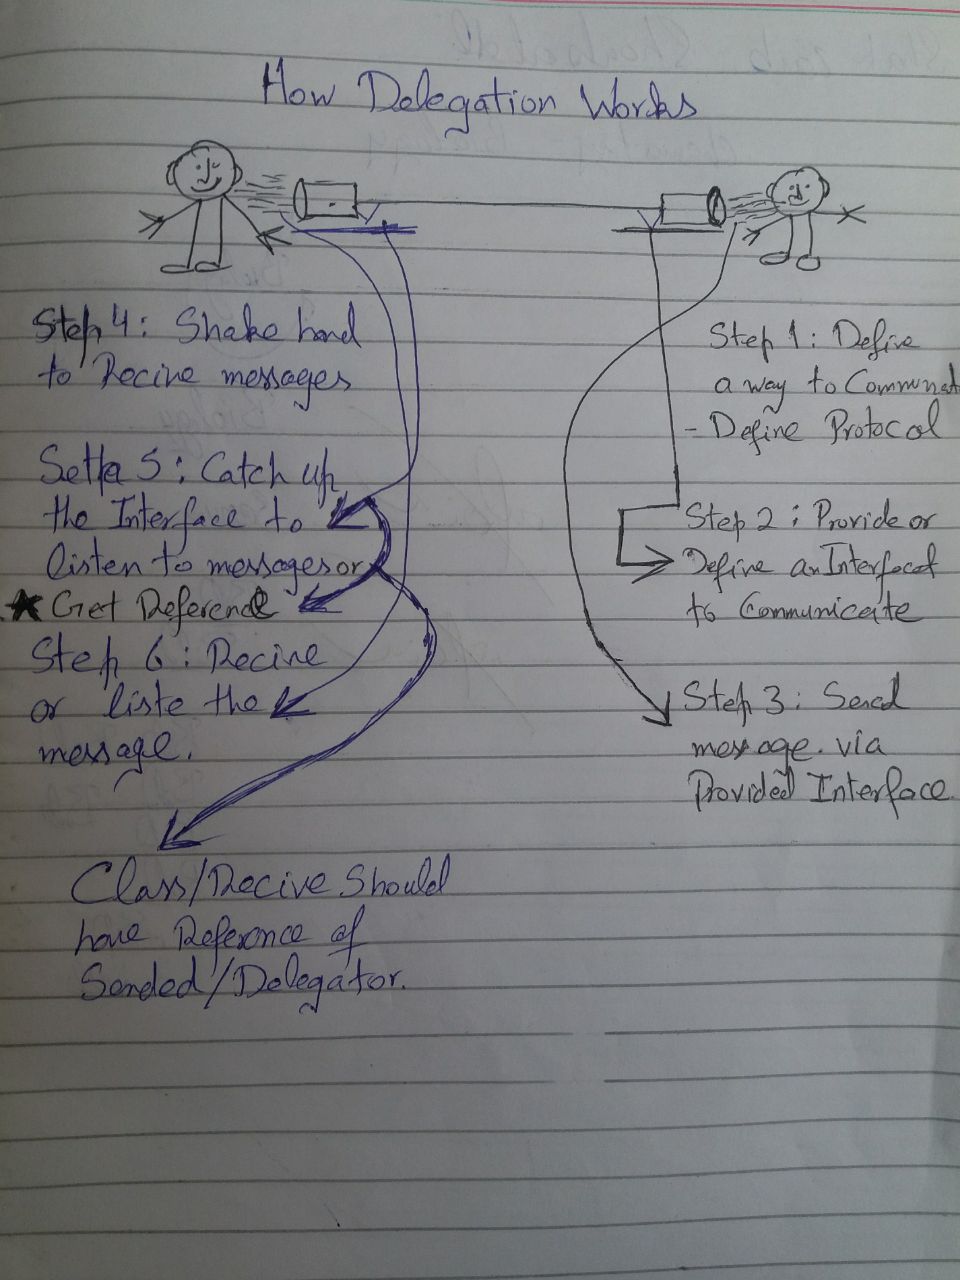 How Delegation Works
Step 4: Shake hand
to Recive messages
Setp 5: Catch up
the Interface to
listen to messages or
Get Reference
Step 6: Recive
or liste the
message.
Class/Recive Should
have Reference of
Sended/Delegator.
Step 1: Define
a way to Communat
- Define Protocol
Step 2: Provide or
Define an Interfacet
to Communicate
Step 3: Send
message. via
Provided Interface.